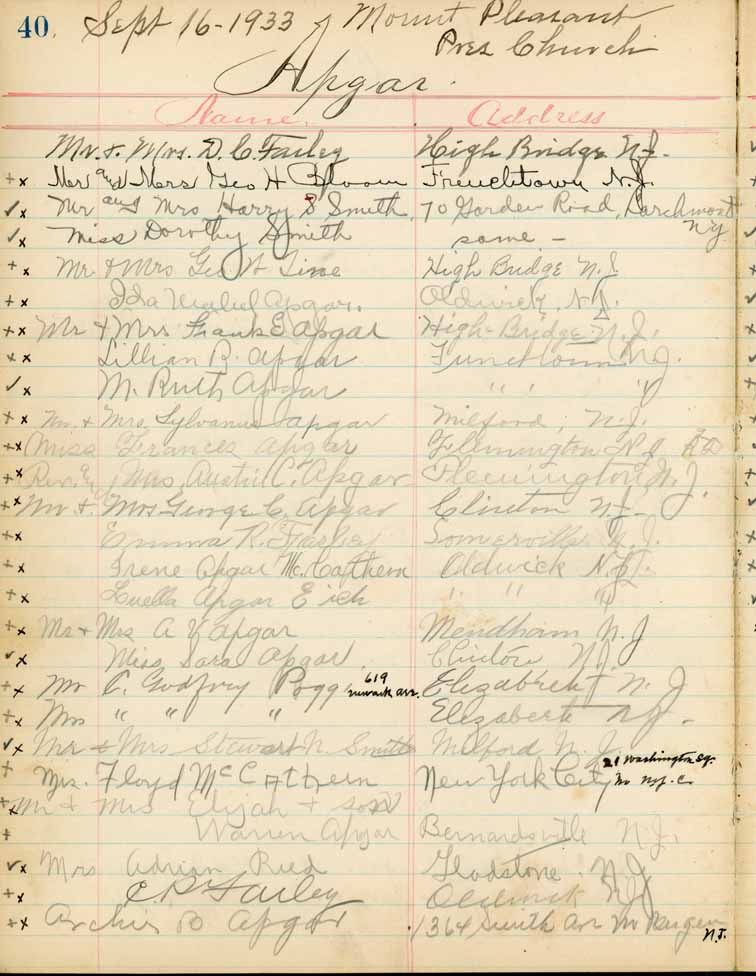 40. Sept 16-1933 Mount Pleasant
Pres Church
Apgar.
Name. Address
Mr. & Mrs. D. C. Farley High Bridge N.J.
Mr and Mrs Geo H Bloom Frenchtown N.J.
Mr and Mrs Harry S Smith, 70 Garden Road, Larchmont
N.Y.
Miss Dorothy Smith same -
Mr. & Mrs. Geo High Bridge N.J.
Ida Apgar. Oldwick, N.J.
Mr & Mrs Frank E Apgar High-Bridge N.J.
Lillian B. Apgar N.J.
M. Ruth Apgar " " "
Mr. & Mrs. Sylvanus Apgar Milford, N.J.
Miss Frances Apgar Flemington N J
Rev. & Mrs. Austin C. Apgar Flemington N. J.
Mr & Mrs. George C. Apgar Clinton N.J.
Emma R. Farley Somerville N. J.
Irene Apgar Mc.Cathern Oldwick N.J.
Luella Apgar Eick " " "
Mr & Mrs A Y Apgar Mendham N. J
Miss Sara Apgar Clinton N.J.
Mr C. Godfrey Pogg 619 Newark ave. Elizabeth N. J
Mrs " " " Elizabeth N.J. -
Mr & Mrs Stewart N. Smith Milford N. J.
Mrs. Floyd McCathern New York City 21 Washington Sq.
No N.Y.C
Mr & Mrs Elijah & son
Warren Apgar Bernardsville N.J.
Mrs Adrian Ried Gladstone. N.J
C R Farley Oldwick N.J
Archie B Apgar 1364 Smith Ave No Bergen
N.J.